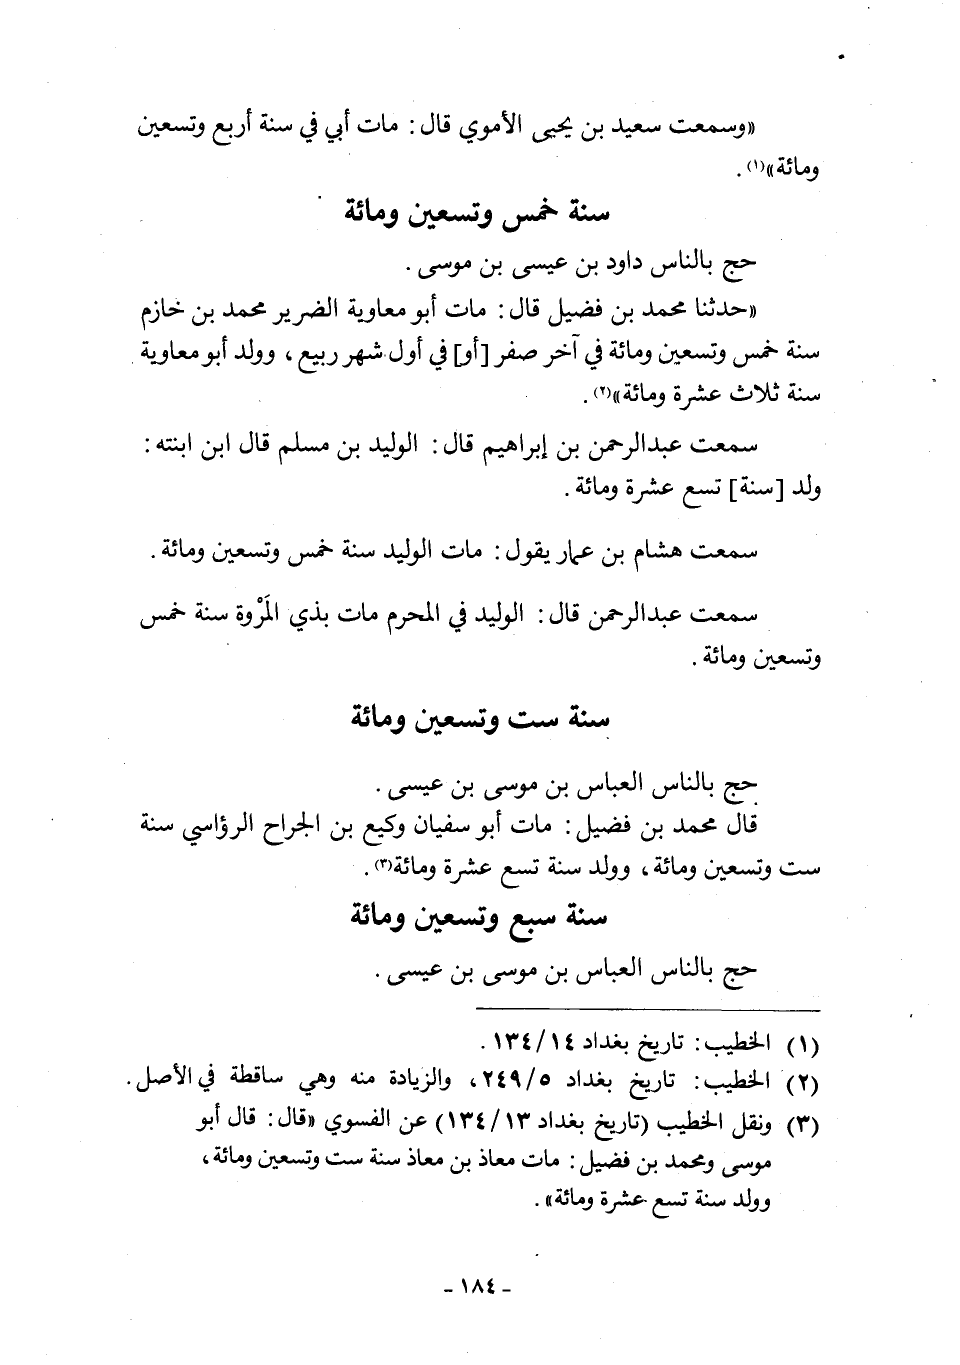 «وسمعت سعيد بن يحيى الأموي قال: مات أبي في سنة أربع وتسعين
ومائة»(١).
سنة خمس وتسعين ومائة
حج بالناس داود بن عيسى بن موسى.
«حدثنا محمد بن فضيل قال: مات أبو معاوية الضرير محمد بن خازم
سنة خمس وتسعين ومائة في آخر صفر [أو] في أول شهر ربيع، وولد أبو معاوية
سنة ثلاث عشرة ومائة»(٢).
سمعت عبدالرحمن بن إبراهيم قال: الوليد بن مسلم قال ابن ابنته:
ولد [سنة] تسع عشرة ومائة.
سمعت هشام بن عمار يقول: مات الوليد سنة خمس وتسعين ومائة.
سمعت عبدالرحمن قال: الوليد في المحرم مات بذي المَرْوة سنة خمس
وتسعين ومائة.
سنة ست وتسعين ومائة
حج بالناس العباس بن موسى بن عيسى.
قال محمد بن فضيل: مات أبو سفيان وكيع بن الجراح الرؤاسي سنة
ست وتسعين ومائة، وولد سنة تسع عشرة ومائة(٣).
سنة سبع وتسعين ومائة
حج بالناس العباس بن موسى بن عيسى.
(١) الخطيب: تاريخ بغداد ١٣٤/١٤.
(٢) الخطيب: تاريخ بغداد ٢٤٩/٥، والزيادة منه وهي ساقطة في الأصل.
(٣) ونقل الخطيب (تاريخ بغداد ١٣٤/١٣) عن الفسوي «قال: قال أبو
موسى ومحمد بن فضيل: مات معاذ بن معاذ سنة ست وتسعين ومائة،
وولد سنة تسع عشرة ومائة».
- ١٨٤ -